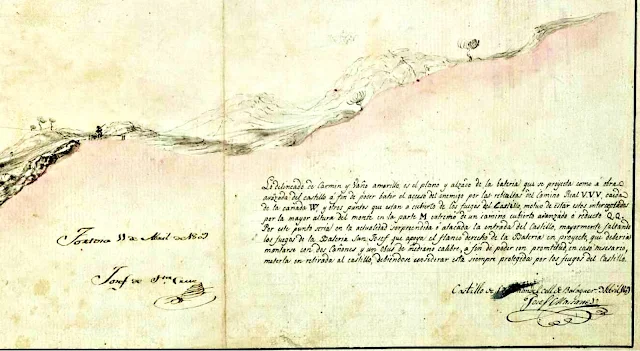 Lo delineado de Carmin y baño amarillo, es el plano y alzado de la bateria, que se proyecta como a otra
avanzada del castillo a fin de poder batir el acceso del enemigo por las rebueltas del camino Real V.VV, caida
de la cañada W, y otros puntos que estan a cubierto de los fuegos del Castillo motivo de estar estos interceptados
por la mayor altura del monte en la parte M extremo de un camino cubierto avanzado o reducto Q.Q.
Por este punto seria en la actualidad sorprendida o atacada la entrada del Castillo, mayormente faltando
los fuegos de la Bateria San Josef que apoye el flanco derecho de la Bateria en proyecto, que deberia
montarse con dos Cañones y un obus de mediano calibre, a fin de poder con promptitud en caso necesario,
meterla en retirada al castillo, debiendose considerar esta siempre protegida por los fuegos del Castillo.
Tortosa 11 de Abril de
Josef de
Castillo de Coll de Balaguer Abril
Josef